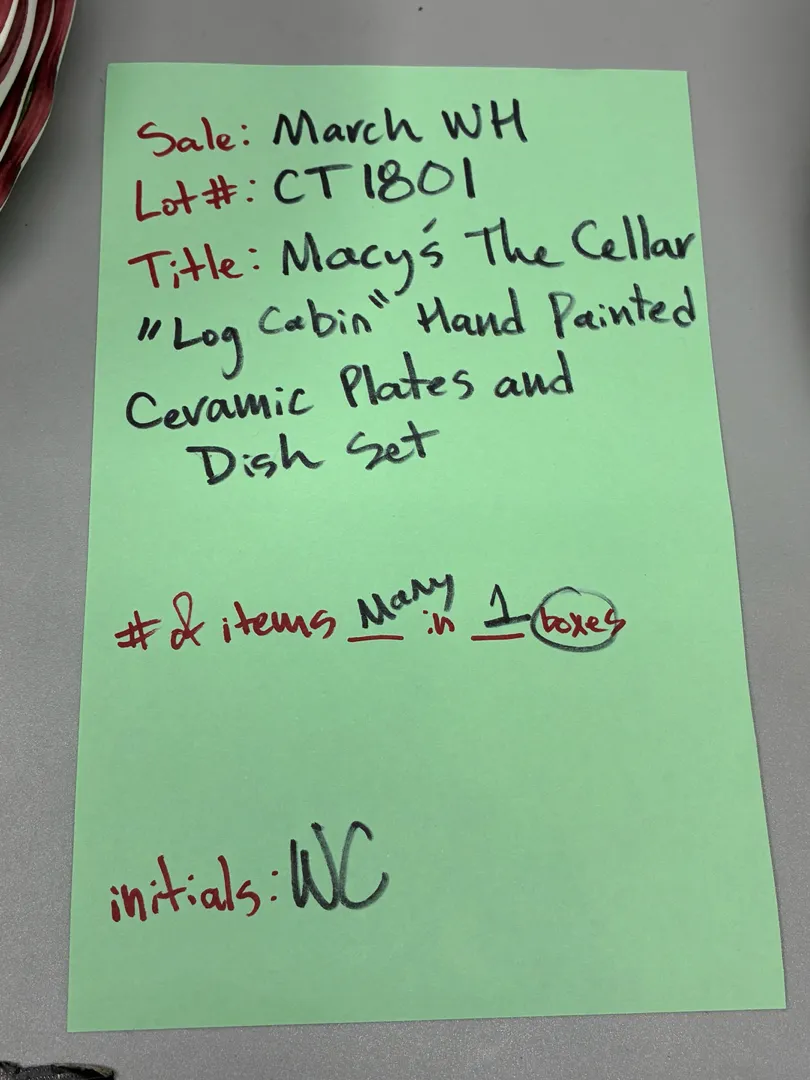 Sale: March WH
Lot#: CT1801
Title: Macy's The Cellar
"Log Cabin" Hand Painted
Ceramic Plates and
Dish Set
# of items Many in 1 boxes
initials: WC